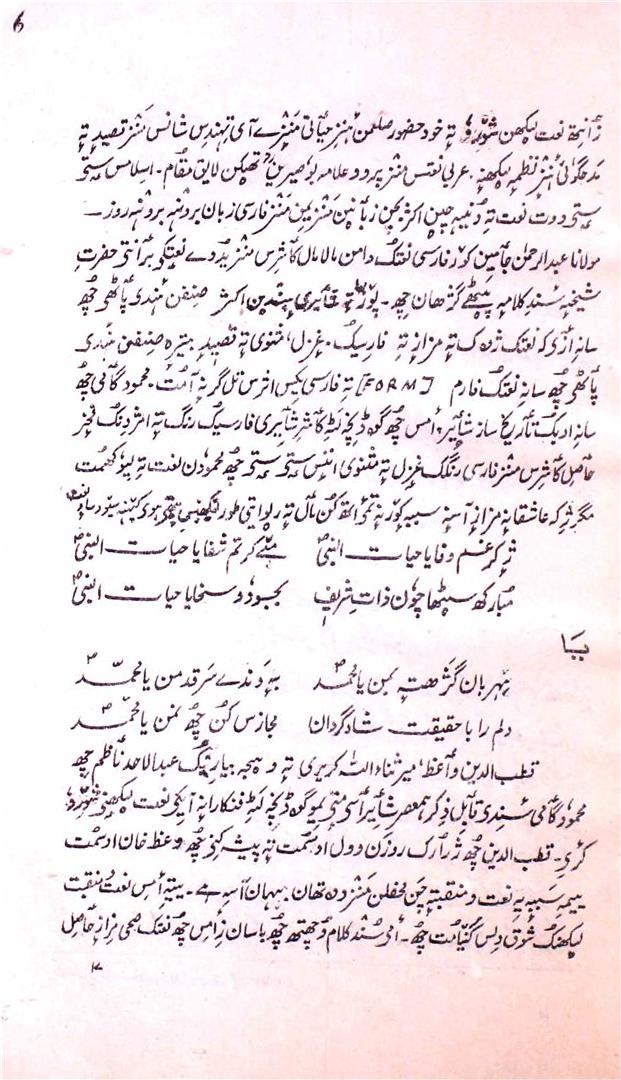 6
زٲنِتھ نعت لیکھن شوٗروٗ تہٕ خود حضور صلعمن ہٕنزِ حیٲتی منٛزٕے آے تٔہندِس شانس منٛز قصیدٕ تہٕ
مدح گوئی ہٕنزٕ نظمہٕ لیکھنہٕ۔ عربی نعتس منٛز بردو علامہ بوصیرین تھیکن لایق مقام۔ اسلامس ستۍ
ستۍ دوت نعت تہٕ دُنیہ چن اکثر بجن زبانین منٛز یمن منٛز فارسی زبان برونہہ برونہہ روز۔
مولانا عبدالرحمٰن جامین کوٚر فارسی نعتک دامن مالامال کٲشرس منٛز یُدوے نعتٕچ برٛانتھ حضرتِ
شیخہٕ سٕندِ کلامہٕ پیٹھے گژھان چھ۔ پوٚز تہٕ شٲیری ہندین اکثر صنفن ہٕندی پاٹھۍ چھُ
سانہِ ازٕکہ نعتک تہٕ مزاز تہٕ فارسیک۔ غزل، مثنوی تہٕ قصیدٕ بیترِ صنفن ہٕندی
پاٹھۍ چھُ سانہِ نعتک فارم [FORM] تہٕ فارسی یکس اثرس تل گرنہٕ آمُت۔ محمود گامی چھُ
سانہِ ادبک تٲریخ ساز شٲعر۔ أمس چھُ گوڈٕ نِچہ لٹہِ کٲشرِ شٲیری فارسیک رنگ تہٕ اثر دِنُک فخر
حٲصل کٲشرس منٛز فارسی رنگک غزل تہٕ مثنوی اننس ستۍ ستۍ چھُ محمودن نعت تہٕ لیوٚکھمُت
مگر یہِ کہ عاشقانہ مزاز آسنہٕ سببہ کوٚر نہٕ تمۍ اتھ کُن مٲل تہٕ روایتی طور لیکھنۍ
ژٕ کر غم وفا یا حیات النبیؐ میٚے کرتم شفا یا حیات النبیؐ
مبارکھ سپٹھا چون ذاتِ شریف بجود و سخا یا حیات النبیؐ
یـا
مہربان گژھتہٕ بمن یا محمدؐ بہٕ وندے سر قدمن یا محمدؐ
دلم را با حقیقت شاد گردان مجازس کُن چھُ نمن یا محمدؐ
قطب الدین واعظ، میر ثناءاللہ کریری تہٕ عبدالاحد ناظم چھ
محمود گامی سٕندۍ قابلِ ذکر ہمعصر شٲعر أسۍ متۍ یمو گوڈٕ نِچہ لٹہِ فنکارانہ آیہِ نعت لیکھنۍ شوٗروٗ
کرۍ۔ قطب الدین چھُ ژرارک روزن وول اوسمُت تہٕ پیشہٕ کنۍ چھُ وعظ خان اوسمُت
ییمہِ سببہ یہ نعت و منقبتہٕ چن محفلن منٛز ودتھان بیہان آسہِ ہے۔ ییتہِ أمس نعت و منقبت
لیکھنک شوق دِلس گنیومُت چھُ۔ أمۍ سُند کلام وُچھتھ چھُ باسان زِ أمس چھُ نعتک صحی مزاز حٲصل